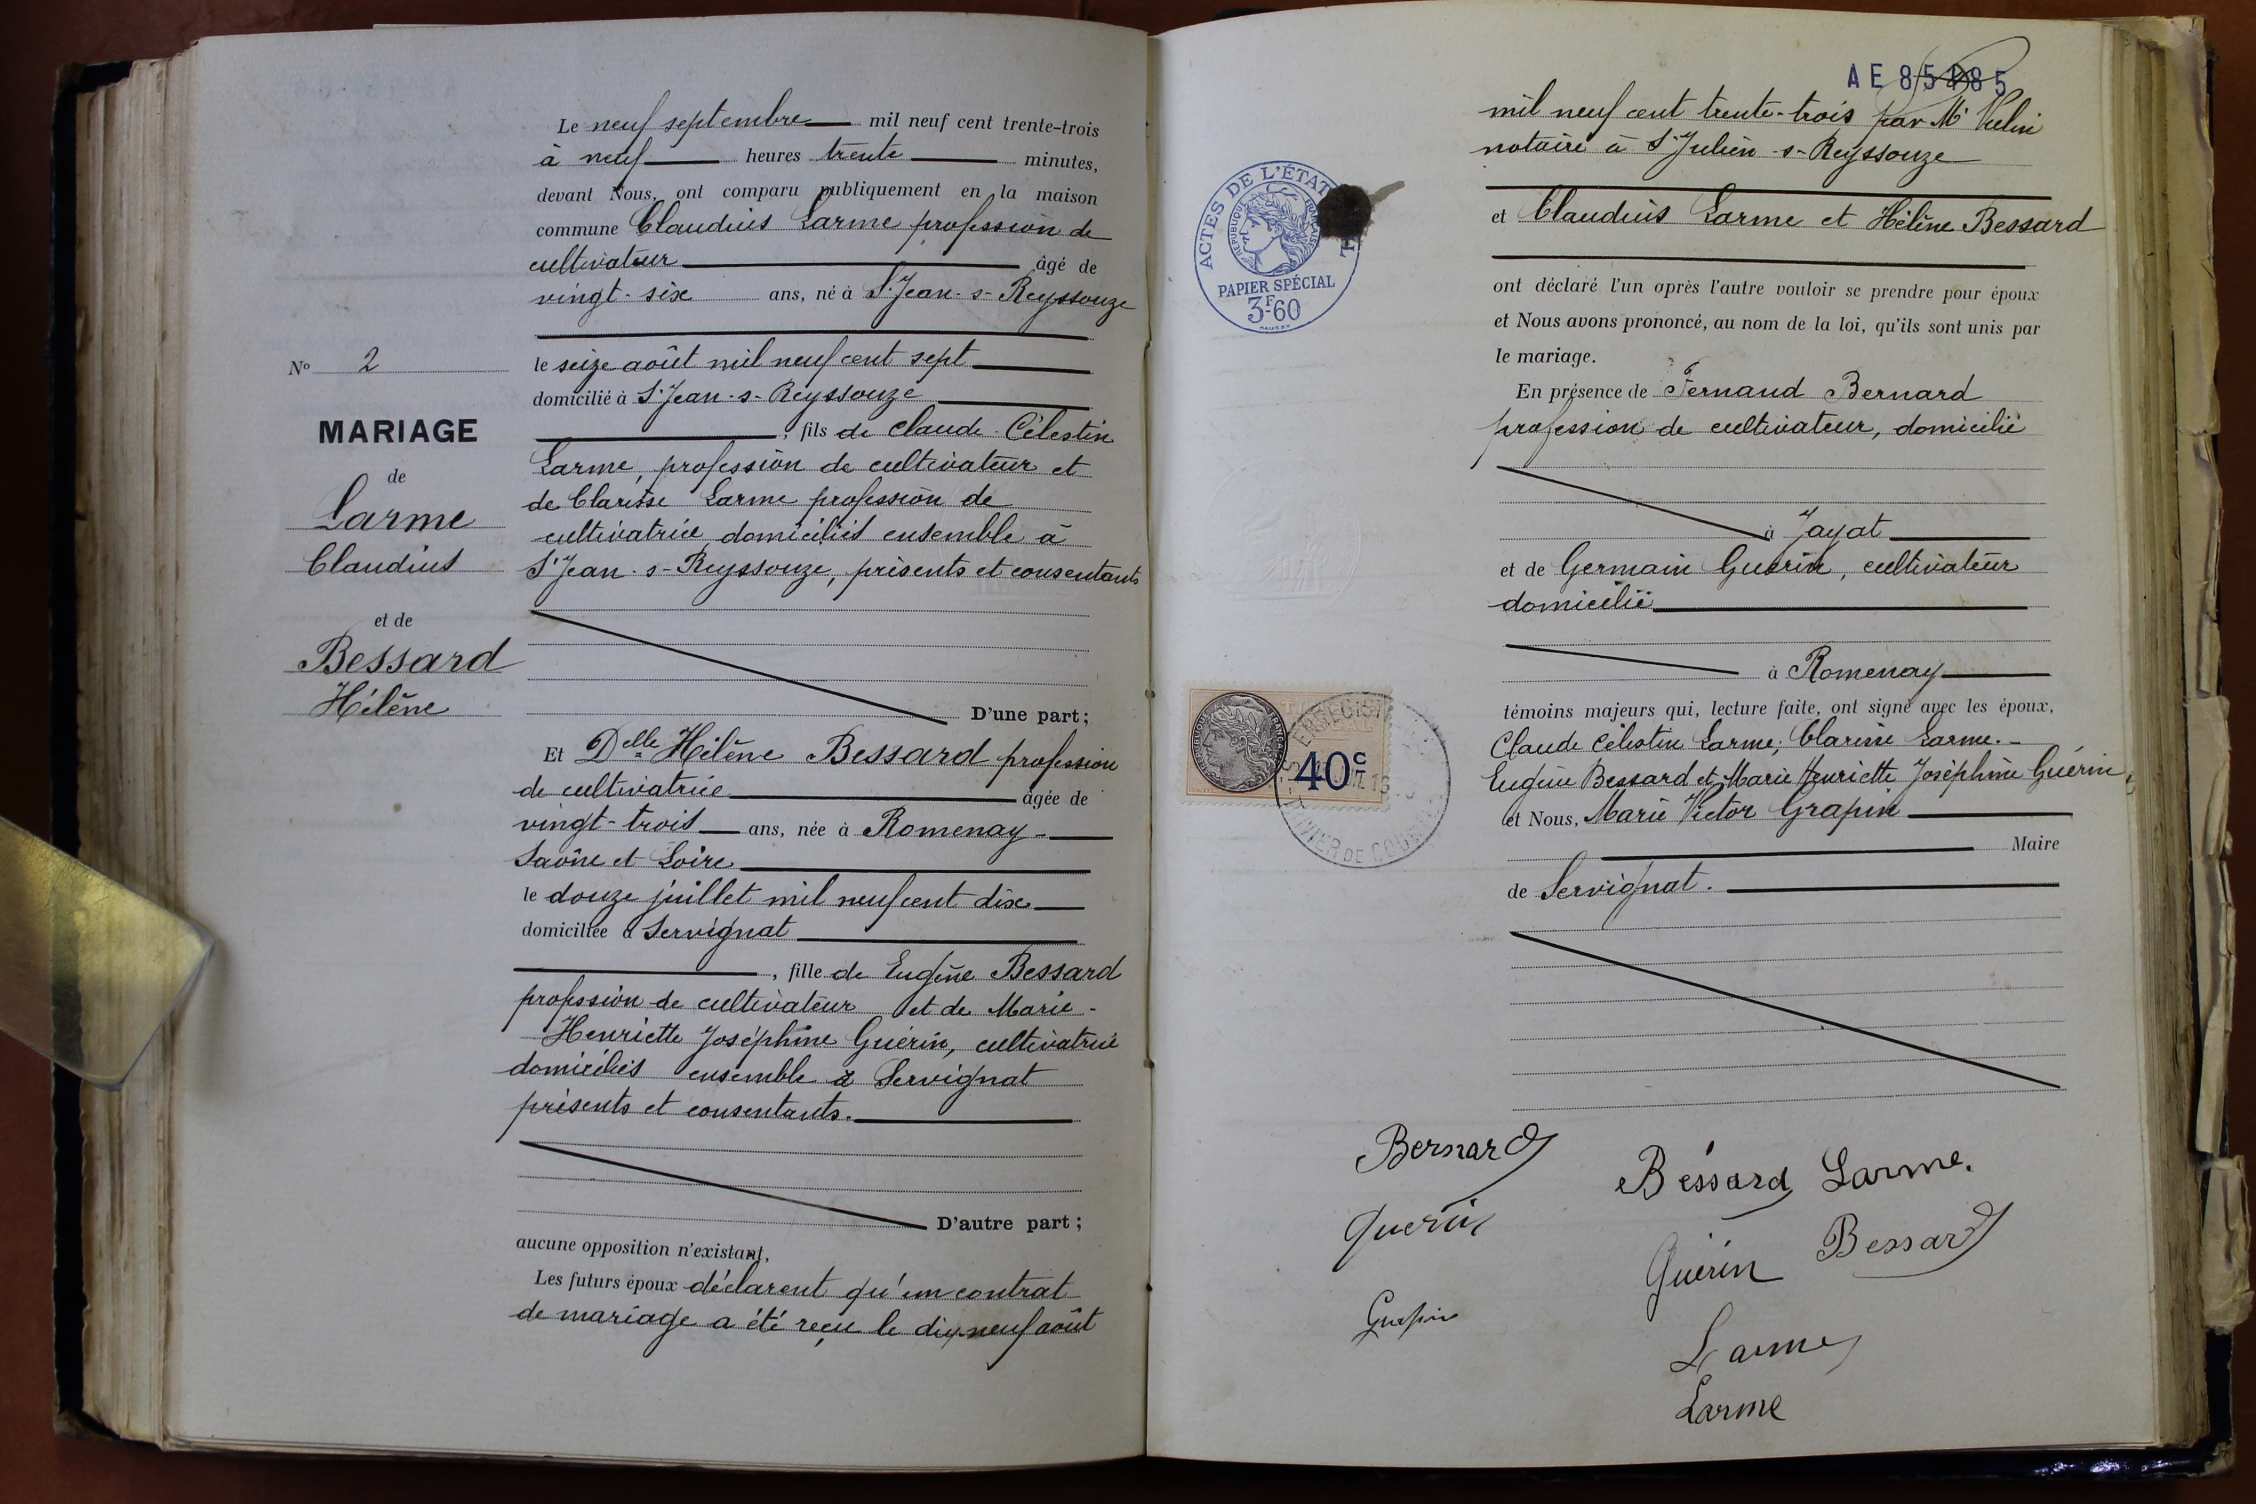 Le neuf septembre mil neuf cent trente-trois
à neuf heures trente minutes,
devant Nous, ont comparu publiquement en la maison
commune Claudius Larme profession de
cultivateur âgé de
vingt-six ans, né à St Jean-s-Reyssouze
le seize août mil neuf cent sept
domicilié à St Jean-s-Reyssouze
, fils de Claude Célestin
Larme, profession de cultivateur et
de Clarisse Larme profession de
cultivatrice domiciliés ensemble à
St Jean-s-Reyssouze, présents et consentants
D'une part;
Et Delle Hélène Bessard profession
de cultivatrice âgée de
vingt-trois ans, née à Romenay
Saône et Loire
le douze juillet mil neuf cent dix
domiciliée à Servignat
, fille de Eugène Bessard
profession de cultivateur et de Marie-
Henriette Joséphine Guérin, cultivatrice
domiciliés ensemble à Servignat
présents et consentants.
D'autre part;
aucune opposition n'existant,
Les futurs époux déclarent qu'un contrat
de mariage a été reçu le dix neuf août
No 2
MARIAGE
de
Larme
Claudius
et de
Bessard
Hélène
AE 85185
mil neuf cent trente-trois par Me
notaire à St Julien-s-Reyssouze
et Claudius Larme et Hélène Bessard
ont déclaré l'un après l'autre vouloir se prendre pour époux
et Nous avons prononcé, au nom de la loi, qu'ils sont unis par
le mariage.
En présence de Fernand Bernard
profession de cultivateur, domicilié
à Jayat
et de Germain Guérin, cultivateur
domicilié
à Romenay
témoins majeurs qui, lecture faite, ont signé avec les époux,
Claude Célestin Larme, Clarisse Larme.
Eugène Bessard et Marie Henriette Joséphine Guérin,
et Nous, Marie Victor Grapin
Maire
de Servignat.
ACTES DE L'ÉTAT
RÉPUBLIQUE FRANÇAISE
PAPIER SPÉCIAL
3F60
40c
Bernard
Bessard Larme.
Guérin
Guérin Bessard
Grapin
Larme
Larme